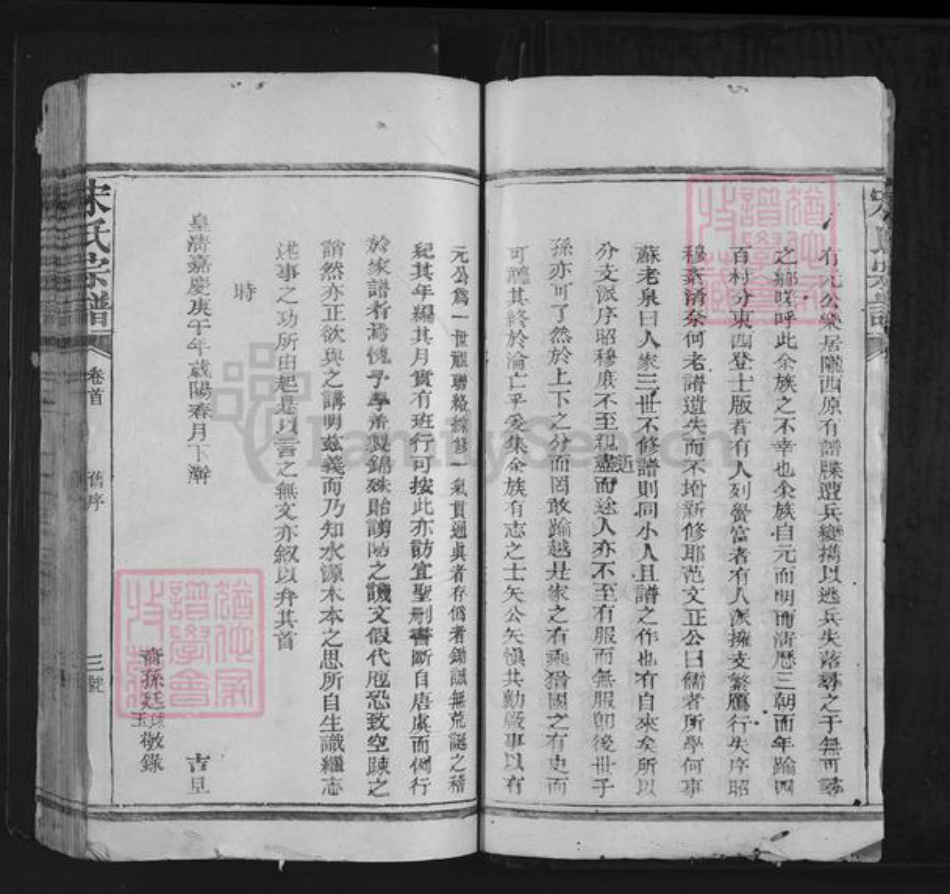 宋氏宗譜
有元公樂居隴西原有譜牒遭兵變攜以逃兵失落尋之于無可尋
之鄉嗟呼此余族之不幸也余族自元而明而清歷三朝而年踰四
百村分東西登士版者有人列黌宮者有人派擁支繁鴈行失序昭
穆紊淆奈何老譜遺失而不增新修耶范文正公曰儒者所學何事
蘇老泉曰人家三世不修譜則同小人且譜之作也有自來矣所以
分支派序昭穆庶不至親盡而途人亦不至有服而無服卽後世子
近
孫亦可了然於上下之分而罔敢踰越是家之有乘猶國之有史而
可聽其終於淪亡乎爰集余族有志之士矢公矢愼共勷厥事以有
元公爲一世祖聯絡條修一氣貫通眞者存僞者鋤誠無荒誕之稽
紀其年編其月實有班行可按此亦訪宜聖刪書斷自唐虞而例行
於家譜者焉愧予學希製錦殊貽謭陋之譏文假代庖恐致空疎之
誚然亦正欲與之講明茲義而乃知水源木本之思所自生識繼志
述事之功所由起是以言之無文亦叙以弁其首
時
皇淸嘉慶庚午年歲陽春月下澣
吉旦
裔孫廷球敬錄
玉
宋氏宗譜
卷首
舊序
三
猶他家譜學會收藏
猶他家譜學會收藏
FamilySearch